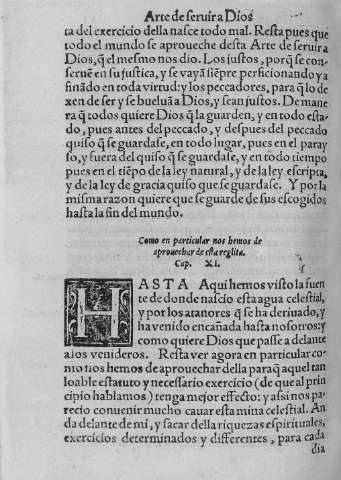 Arte de seruir a Dios
ta del exercicio della nasce todo mal. Resta pues que
todo el mundo se aproueche desta Arte de seruir a
Dios, q̃ el mesmo nos dio. Los justos, porq̃ se con-
seruẽ en su justica, y se vayã siẽpre perficionando y a
finãdo en toda virtud: y los peccadores, para q̃ lo de
xen de ser y se bueluã a Dios, y sean justos. De mane
ra q̃ todos quiere Dios q̃ la guarden, y en todo esta-
do, pues antes del peccado, y despues del peccado
quiso q̃ se guardase, en todo lugar, pues en el paray
so, y fuera del quiso q̃ se guardase, y en todo tiempo
pues en el tiẽpo de la ley natural, y de la ley escripta,
y de la ley de gracia quiso que se guardase. Y por la
misma razon quiere que se guarde de sus escogidos
hasta la fin del mundo.
Como en particular nos hemos de
aprouechar de esta reglita.
Cap. XI.
HASTA Aqui hemos visto la fuen
te de donde nascio esta agua celestial,
y por los atanores q̃ se ha deriuado, y
ha venido encañada hasta nosotros: y
como quiere Dios que passe a delante
a los venideros. Resta ver agora en particular co-
mo nos hemos de aprouechar della paraq̃ aquel tan
loable estatuto y necessario exercicio (de que al prin
cipio hablamos) tenga mejor effecto: y assi nos pa-
recio conuenir mucho cauar esta mina celestial. An
da delante de mi, y sacar della riquezas espirituales,
exercicios determinados y differentes, para cada
dia